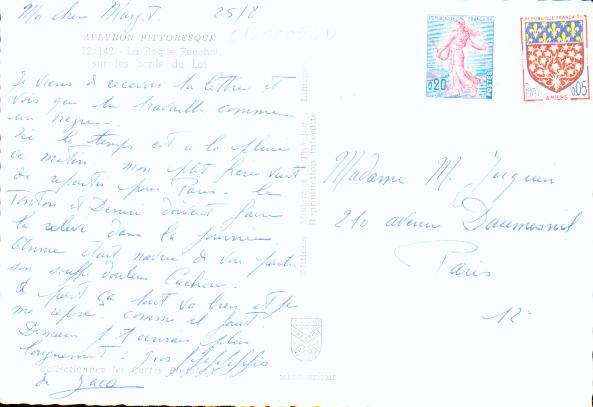 Ma chère Margot. 25/8
AVEYRON PITTORESQUE
12/142 - La Roque Penchot
sur les bords du Lot
Je viens de recevoir ta lettre et
vois que tu travailles comme
un nègre.
Ici le temps est à la pluie
ce matin mon ptit frère vient
de repartir pour Paris. Les
Tonton et Denise doivent faire
la relève dans la journée
Annie était navrée de voir partir
son souffre douleur
A part ça tout va bien et je
me repose comme il faut.
Demain j't'écrirais plus
longuement. gros
de Jaco
Collectionnez les Cartes Postales
Reproduction Interdite
REPUBLIQUE FRANÇAISE
0,20
POSTES
REPUBLIQUE FRANÇAISE
POSTES
0,05
AMIENS
Madame M. Jacquin
210 avenue Daumesnil
Paris
12e